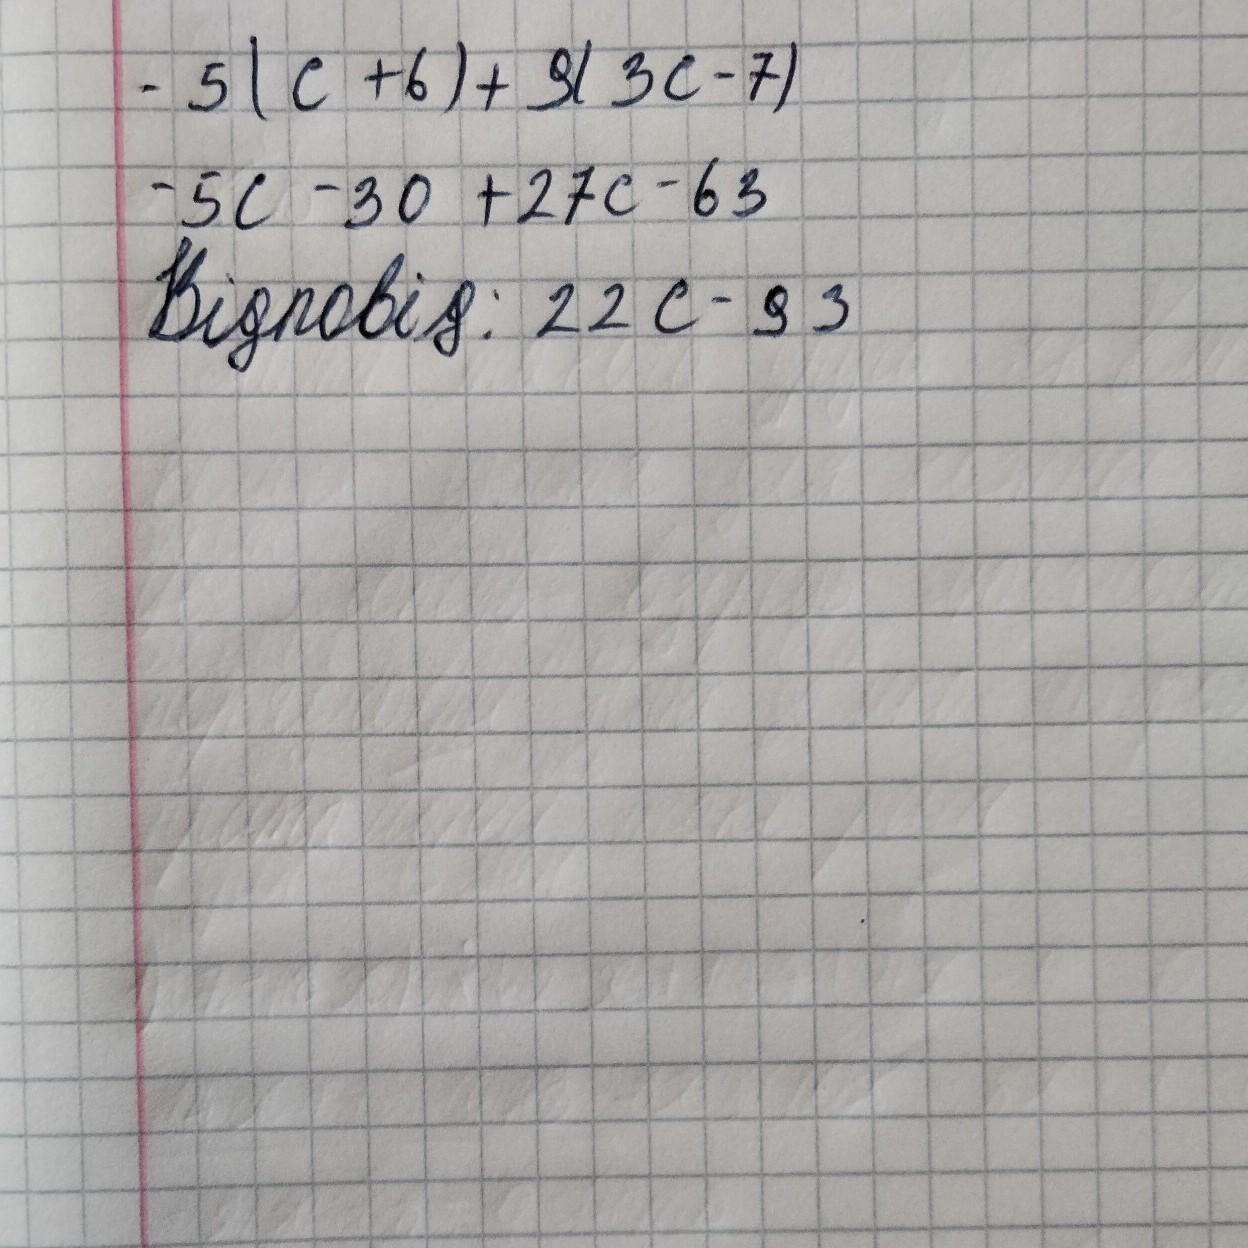 - 5( c + 6) + 9( 3c - 7)
-5c - 30 + 27c - 63
Відповідь: 22c - 93